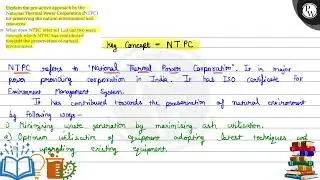 Explain the pro-active approach by the
National Thermal Power Corporation (NTPC)
for preserving the natural environment and
resources.
What does NTPC refer to? List out two ways
through which NTPC has contributed
towards the preservation of natural
environment.
Key Concept = NTPC
NTPC refers to "National Thermal Power Corporation". It is major
power providing corporation in India. It has ISO certificate for
Environment Management System.
It has contributed towards the preservation of natural environment
by following ways-
1) Minimizing waste generation by maximising ash utilisation.
2) Optimum utilisation of equipment adopting latest techniques and
upgrading existing equipment.